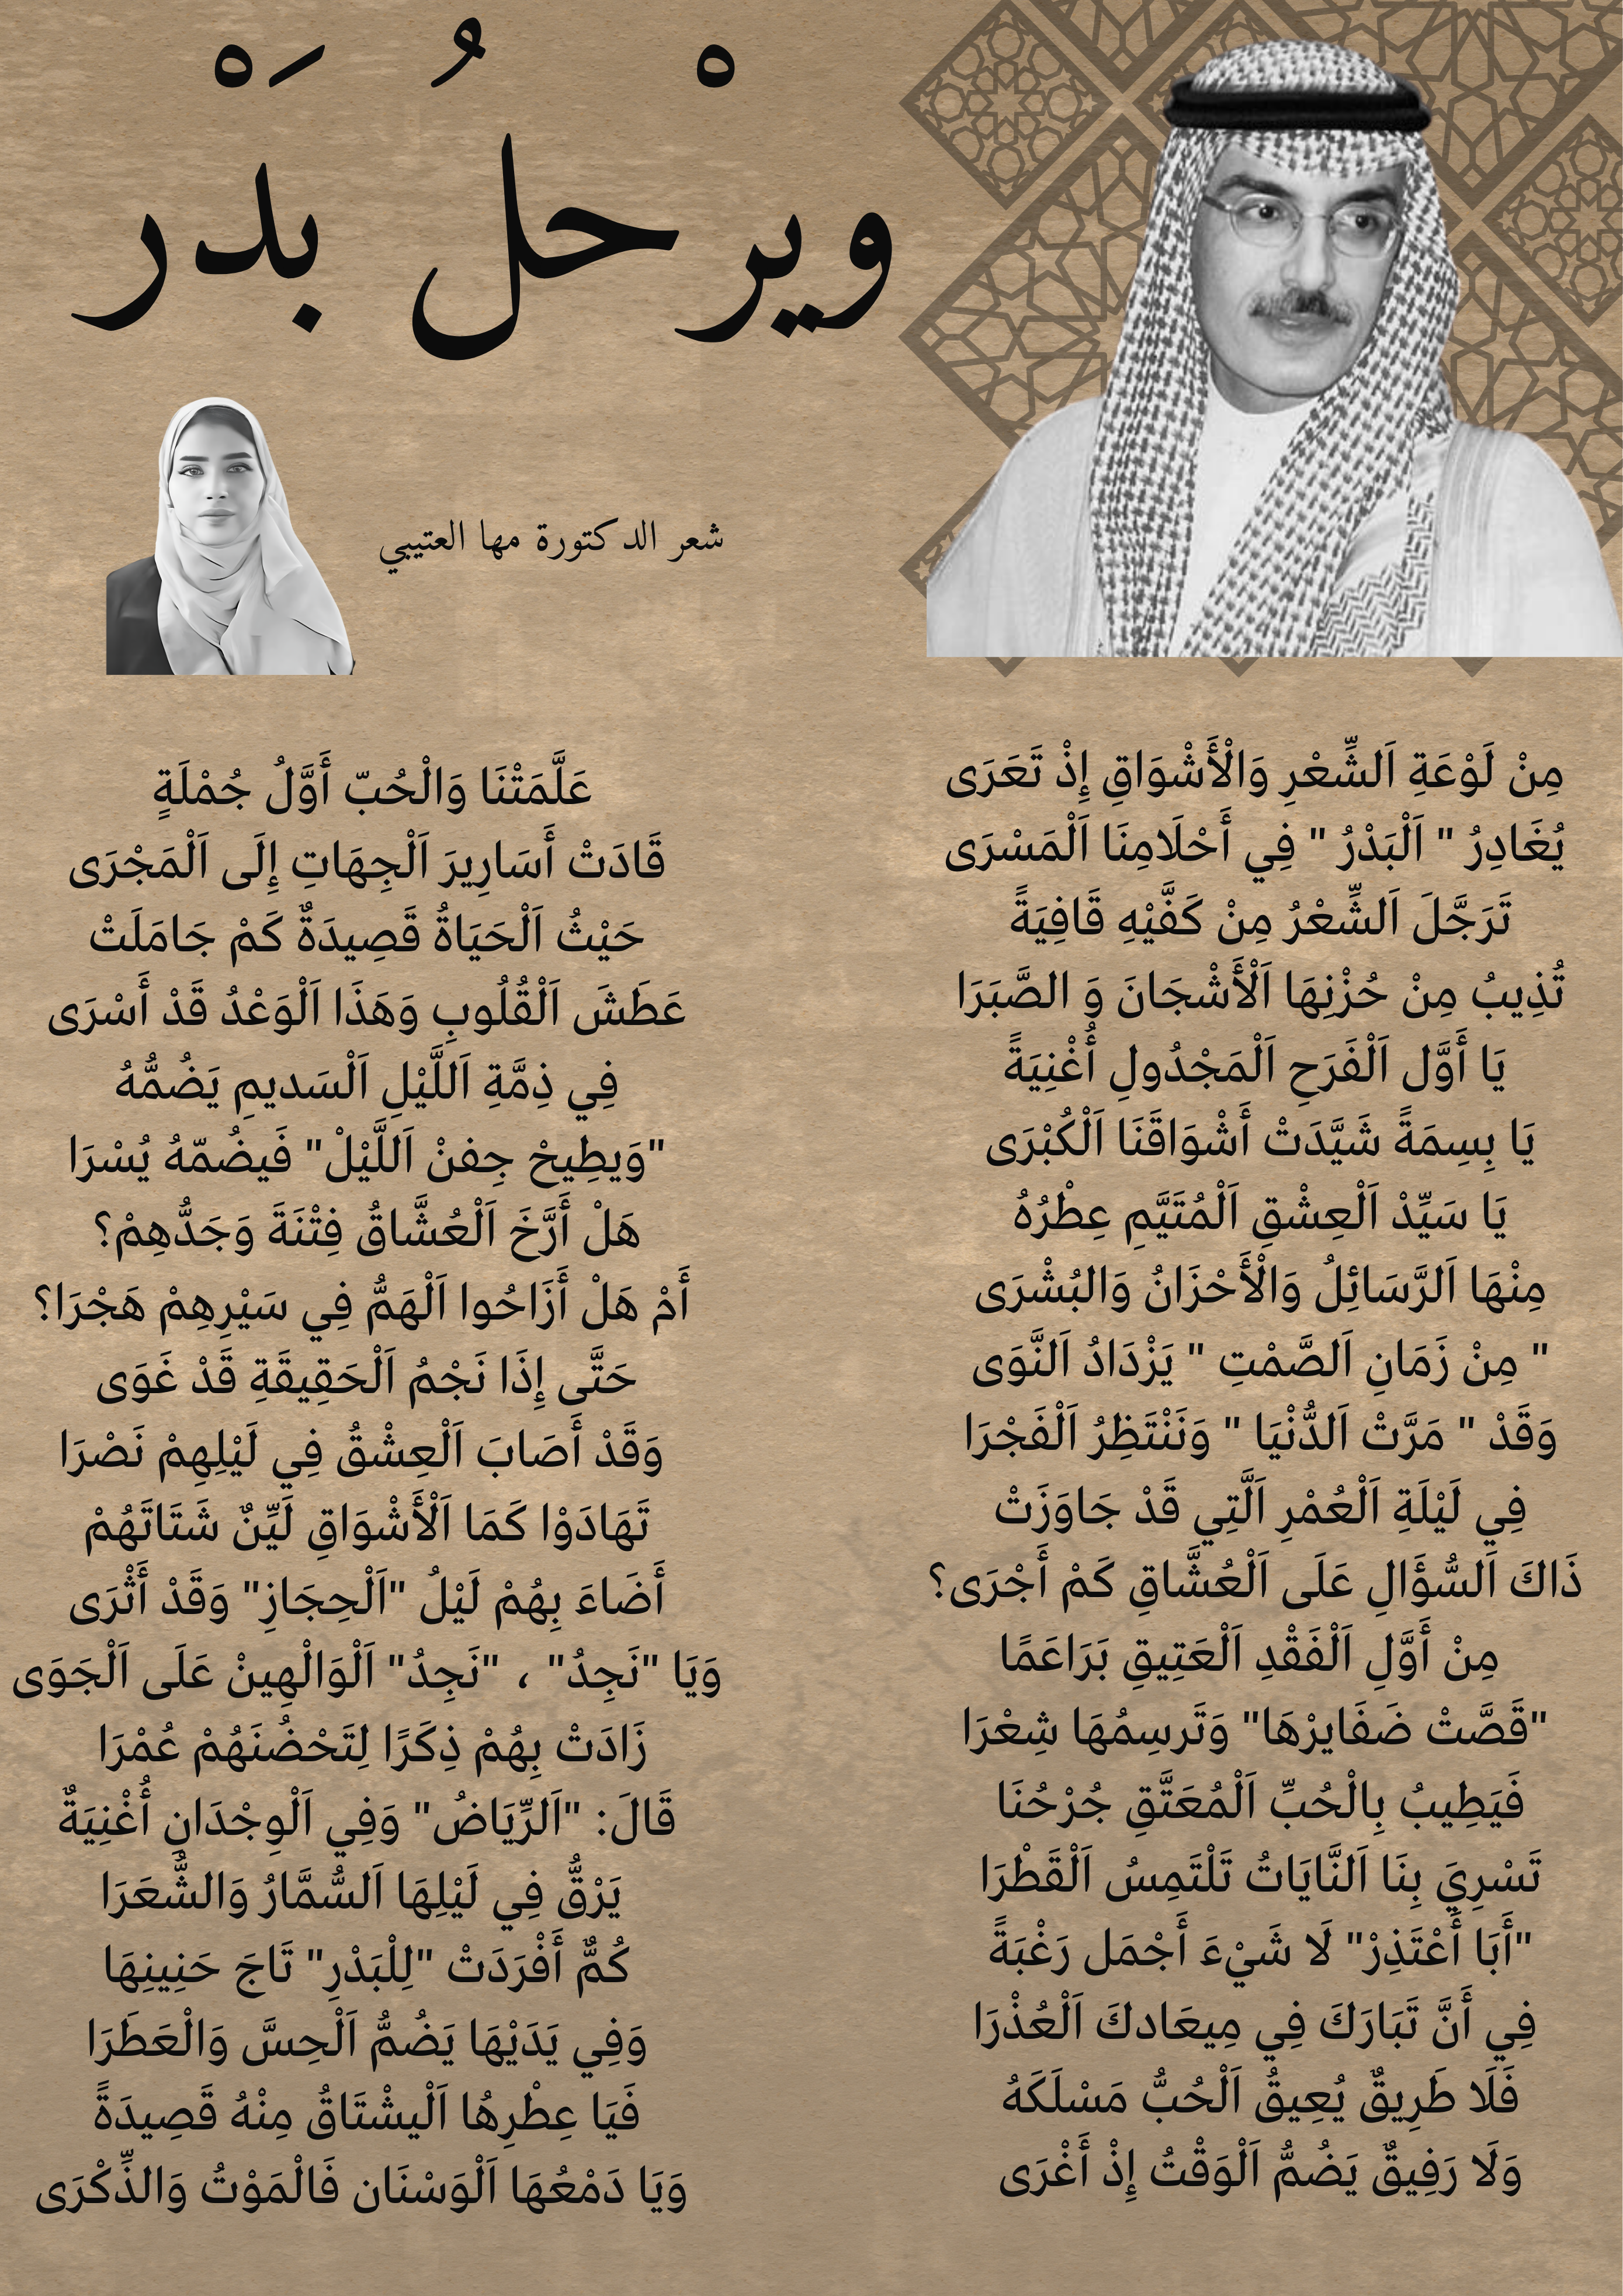 ويرْحلُ بدَرْ
شعر الدكتورة مها العتيبي
مِنْ لَوْعَةِ اَلشِّعْرِ وَالْأَشْوَاقِ إِذْ تَعَرَى
يُغَادِرُ " اَلْبَدْرُ " فِي أَحْلَامِنَا اَلْمَسْرَى
تَرَجَّلَ اَلشِّعْرُ مِنْ كَفَّيْهِ قَافِيَةً
تُذِيبُ مِنْ حُزْنِهَا اَلْأَشْجَانَ وَ الصَّبَرَا
يَا أَوَّل اَلْفَرَحِ اَلْمَجْدُولِ أُغْنِيَةً
يَا بِسِمَةً شَيَّدَتْ أَشْوَاقَنَا اَلْكُبْرَى
يَا سَيِّدْ اَلْعِشْقِ اَلْمُتَيَّمِ عِطْرُهُ
مِنْهَا اَلرَّسَائِلُ وَالْأَحْزَانُ وَالبُشْرَى
" مِنْ زَمَانِ اَلصَّمْتِ " يَزْدَادُ اَلنَّوَى
وَقَدْ " مَرَّتْ اَلدُّنْيَا " وَنَنْتَظِرُ اَلْفَجْرَا
فِي لَيْلَةِ اَلْعُمْرِ اَلَّتِي قَدْ جَاوَزَتْ
ذَاكَ اَلسُّؤَالِ عَلَى اَلْعُشَّاقِ كَمْ أَجْرَى؟
مِنْ أَوَّلِ اَلْفَقْدِ اَلْعَتِيقِ بَرَاعَمًا
"قَصَّتْ ضَفَايرْهَا" وَتَرسِمُهَا شِعْرَا
فَيَطِيبُ بِالْحُبِّ اَلْمُعَتَّقِ جُرْحُنَا
تَسْرِيَ بِنَا اَلنَّايَاتُ تَلْتَمِسُ اَلْقَطْرَا
"أَبَا أَعْتَذِرْ" لَا شَيْءَ أَجْمَل رَغْبَةً
فِي أَنَّ تَبَارَكَ فِي مِيعَادكَ اَلْعُذْرَا
فَلَا طَرِيقٌ يُعِيقُ اَلْحُبُّ مَسْلَكَهُ
وَلَا رَفِيقٌ يَضُمُّ اَلْوَقْتُ إِذْ أَغْرَى
عَلَّمَتْنَا وَالْحُبّ أَوَّلُ جُمْلَةٍ
قَادَتْ أَسَارِيرَ اَلْجِهَاتِ إِلَى اَلْمَجْرَى
حَيْثُ اَلْحَيَاةُ قَصِيدَةٌ كَمْ جَامَلَتْ
عَطَشَ اَلْقُلُوبِ وَهَذَا اَلْوَعْدُ قَدْ أَسْرَى
فِي ذِمَّةِ اَللَّيْلِ اَلْسَديمِ يَضُمُّهُ
"وَيطِيحْ جِفنْ اَللَّيْلْ" فَيضُمّهُ يُسْرَا
هَلْ أَرَّخَ اَلْعُشَّاقُ فِتْنَةَ وَجَدُّهِمْ؟
أَمْ هَلْ أَزَاحُوا اَلْهَمُّ فِي سَيْرِهِمْ هَجْرَا؟
حَتَّى إِذَا نَجْمُ اَلْحَقِيقَةِ قَدْ غَوَى
وَقَدْ أَصَابَ اَلْعِشْقُ فِي لَيْلِهِمْ نَصْرَا
تَهَادَوْا كَمَا اَلْأَشْوَاقِ لَيِّنٌ شَتَاتَهُمْ
أَضَاءَ بِهُمْ لَيْلُ "اَلْحِجَازِ" وَقَدْ أَثْرَى
وَيَا "نَجِدُ" ، "نَجِدُ" اَلْوَالْهِينْ عَلَى اَلْجَوَى
زَادَتْ بِهُمْ ذِكَرًا لِتَحْضُنَهُمْ عُمْرَا
قَالَ: "اَلرِّيَاضُ" وَفِي اَلْوِجْدَانِ أُغْنِيَةٌ
يَرْقُّ فِي لَيْلِهَا اَلسُّمَّارُ وَالشُّعَرَا
كُمٌّ أَفْرَدَتْ "لِلْبَدْرِ" تَاجَ حَنِينِهَا
وَفِي يَدَيْهَا يَضُمُّ اَلْحِسَّ وَالْعَطَرَا
فَيَا عِطْرِهُا اَلْيشْتَاقُ مِنْهُ قَصِيدَةً
وَيَا دَمْعُهَا اَلْوَسْنَان فَالْمَوْتُ وَالذِّكْرَى